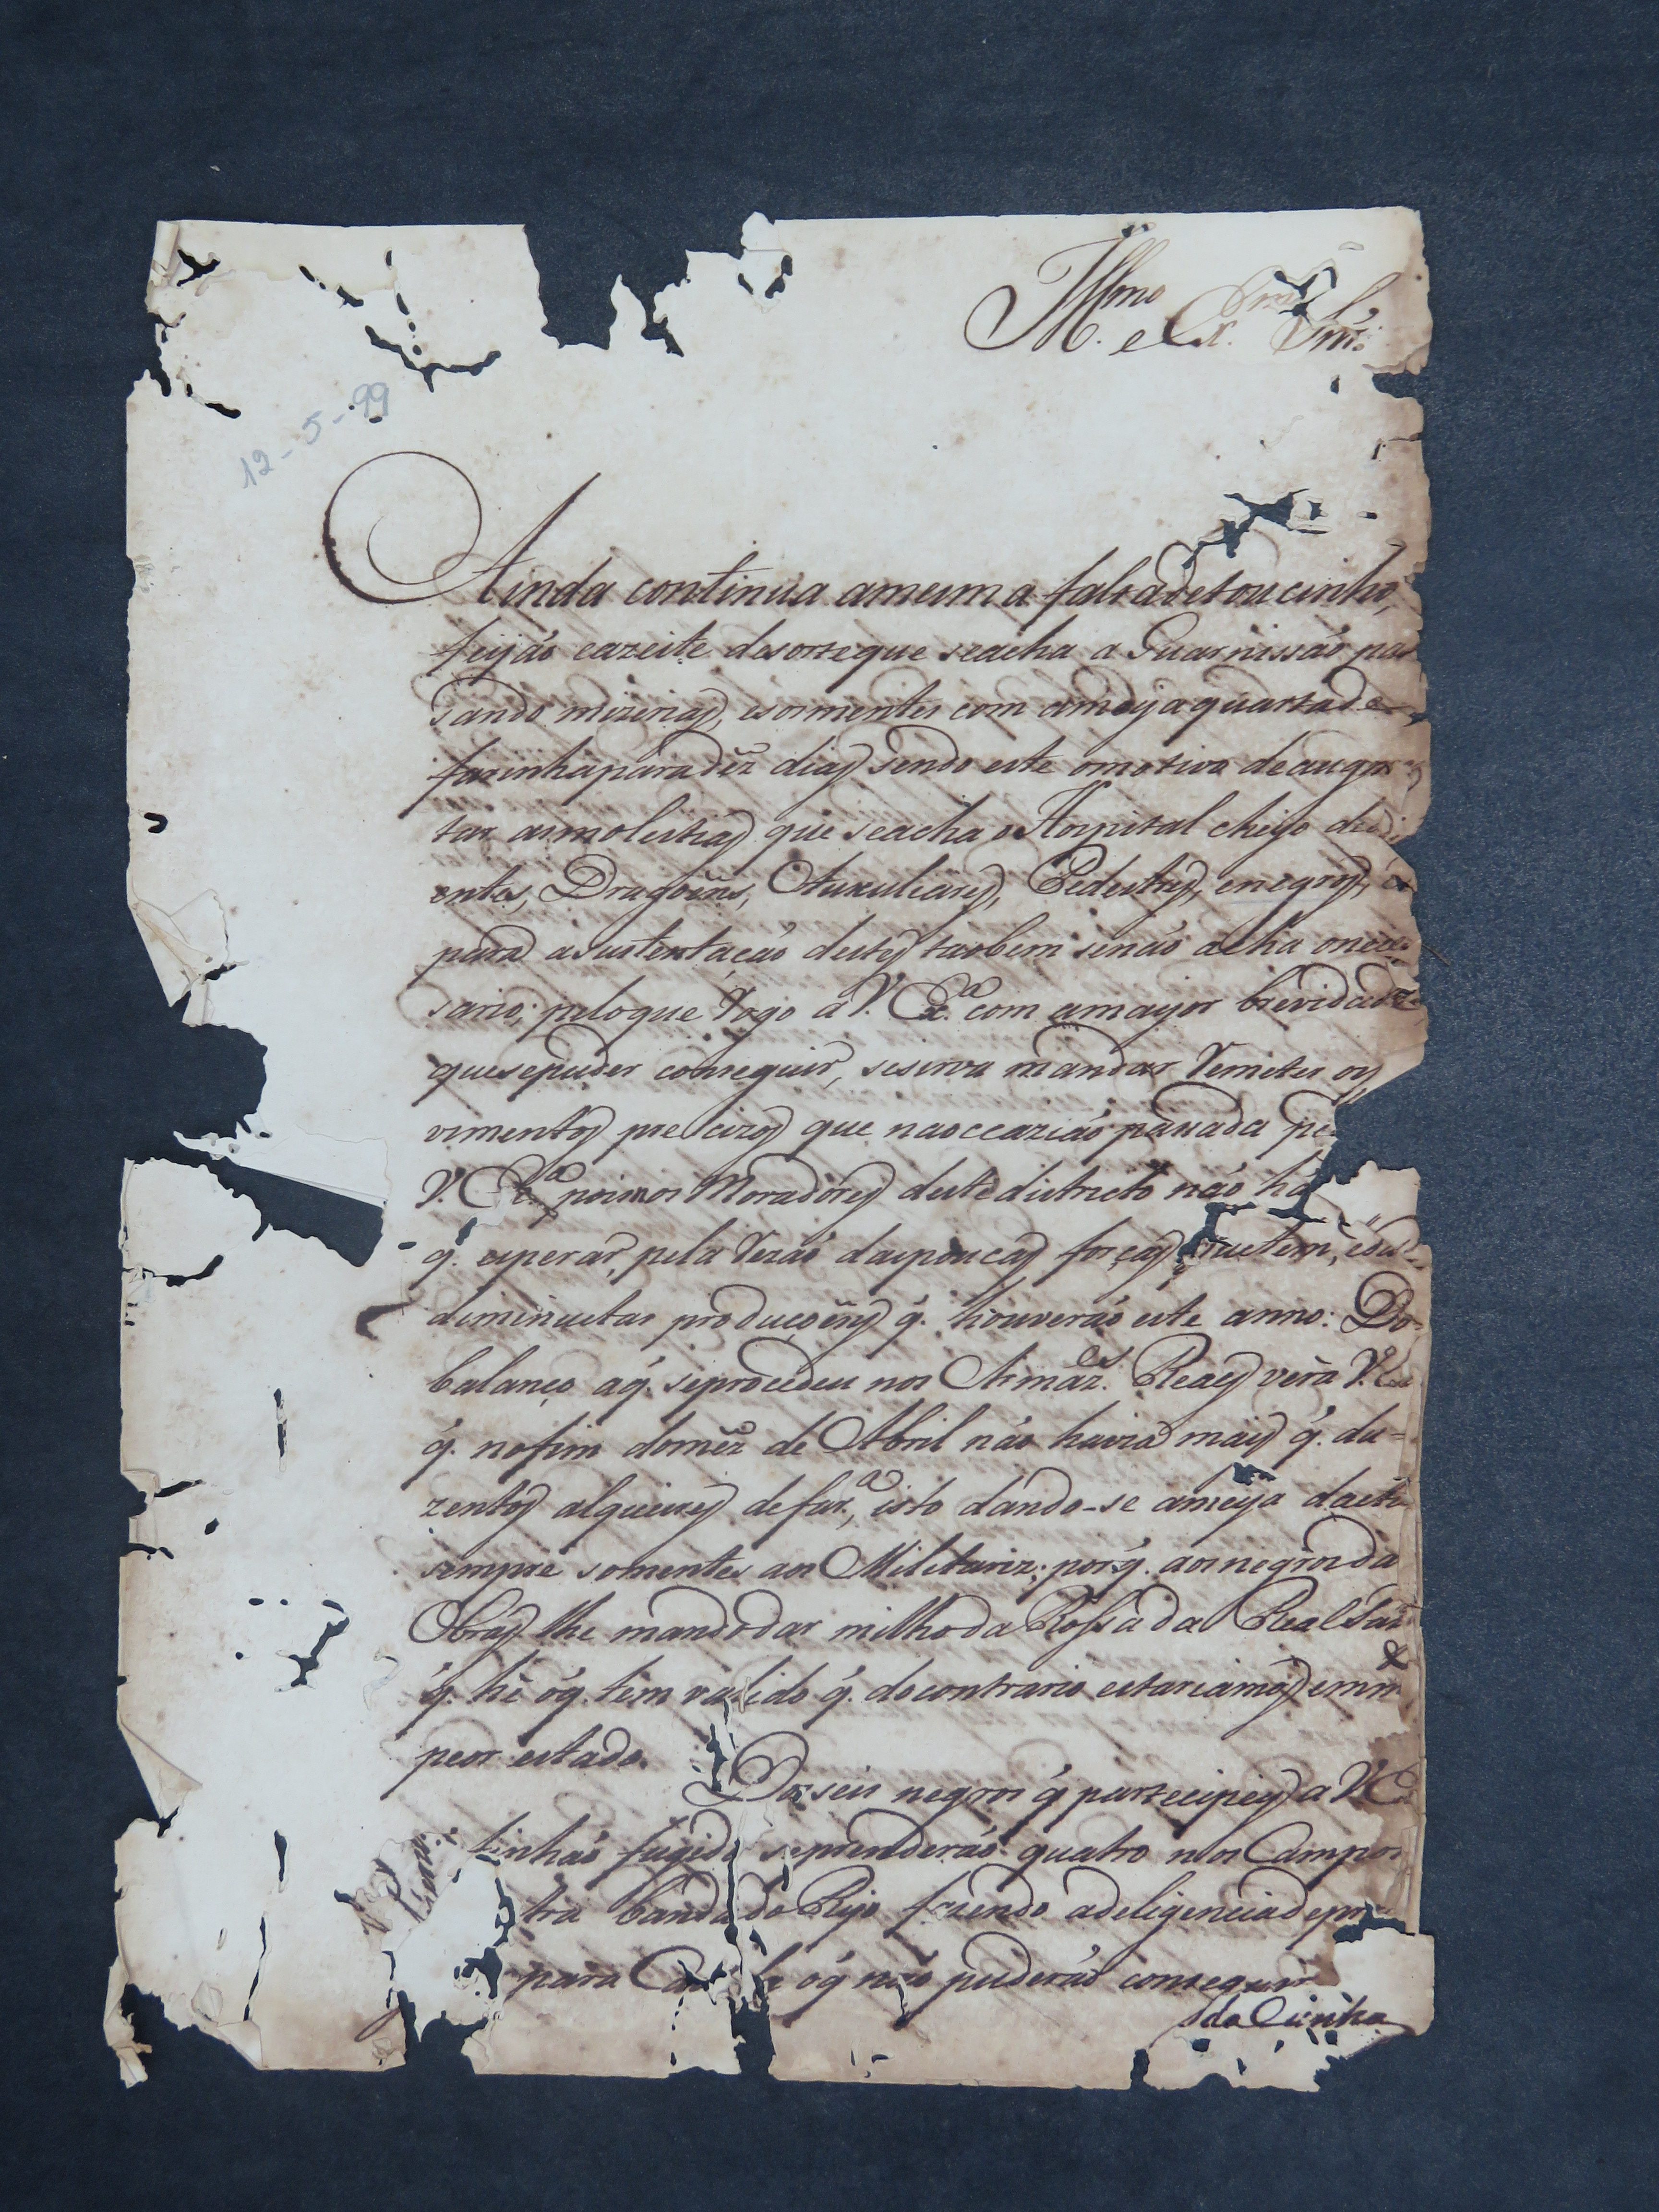 Illmo e Ex.mo Snr.
12-5-99
Ainda continua amesma faltadetoucinho,
feijáo eazeite desorteque seacha a Guarnissáo pas
sando mizerias, esormentes com ameyaquartade
farinhaparadêz dias sendo este omotivo deaugm
tar asmolestias que seacha o Hospital cheyo de
entes, Dragoins, Auxuliares, Pedestres, enegros, e
para asustentaçáo destes taobem senáo acha onece
sario; peloque Rogo a V. Ex.a com amayor brevidade
quesepuder conseguir, sesirva mandar Remeter os
vimentos precizos que naoccaziáo passada pe
V. Ex.a poisnos Moradores destedistricto náo há
q. esperar, pela Rezáo daspoucas forças quetem, e
diminuctas produçoins q. houveráo este anno: Do
balanço aq. seprocedeu nos Armaz.es Reaes verá V. Ex
q. nofim domêz de Abril náo havia mais q. du=
zentos alqueires defar.a, isto dando-se ameya
sempre somentes aos Militariz; porq. aosnegrosda
Obras lhe mandodar milhoda Rossada Real
q. hê oq. tem valido q. docontrario estariamos em
peor estado.
Dos seis negros q partecipey a V. E
tinháo fugido seprenderáo quatro nos Campos
tra bandado Rijo fazendo adeligenciadepr
para oq náo puderáo conseguir
da Cunha